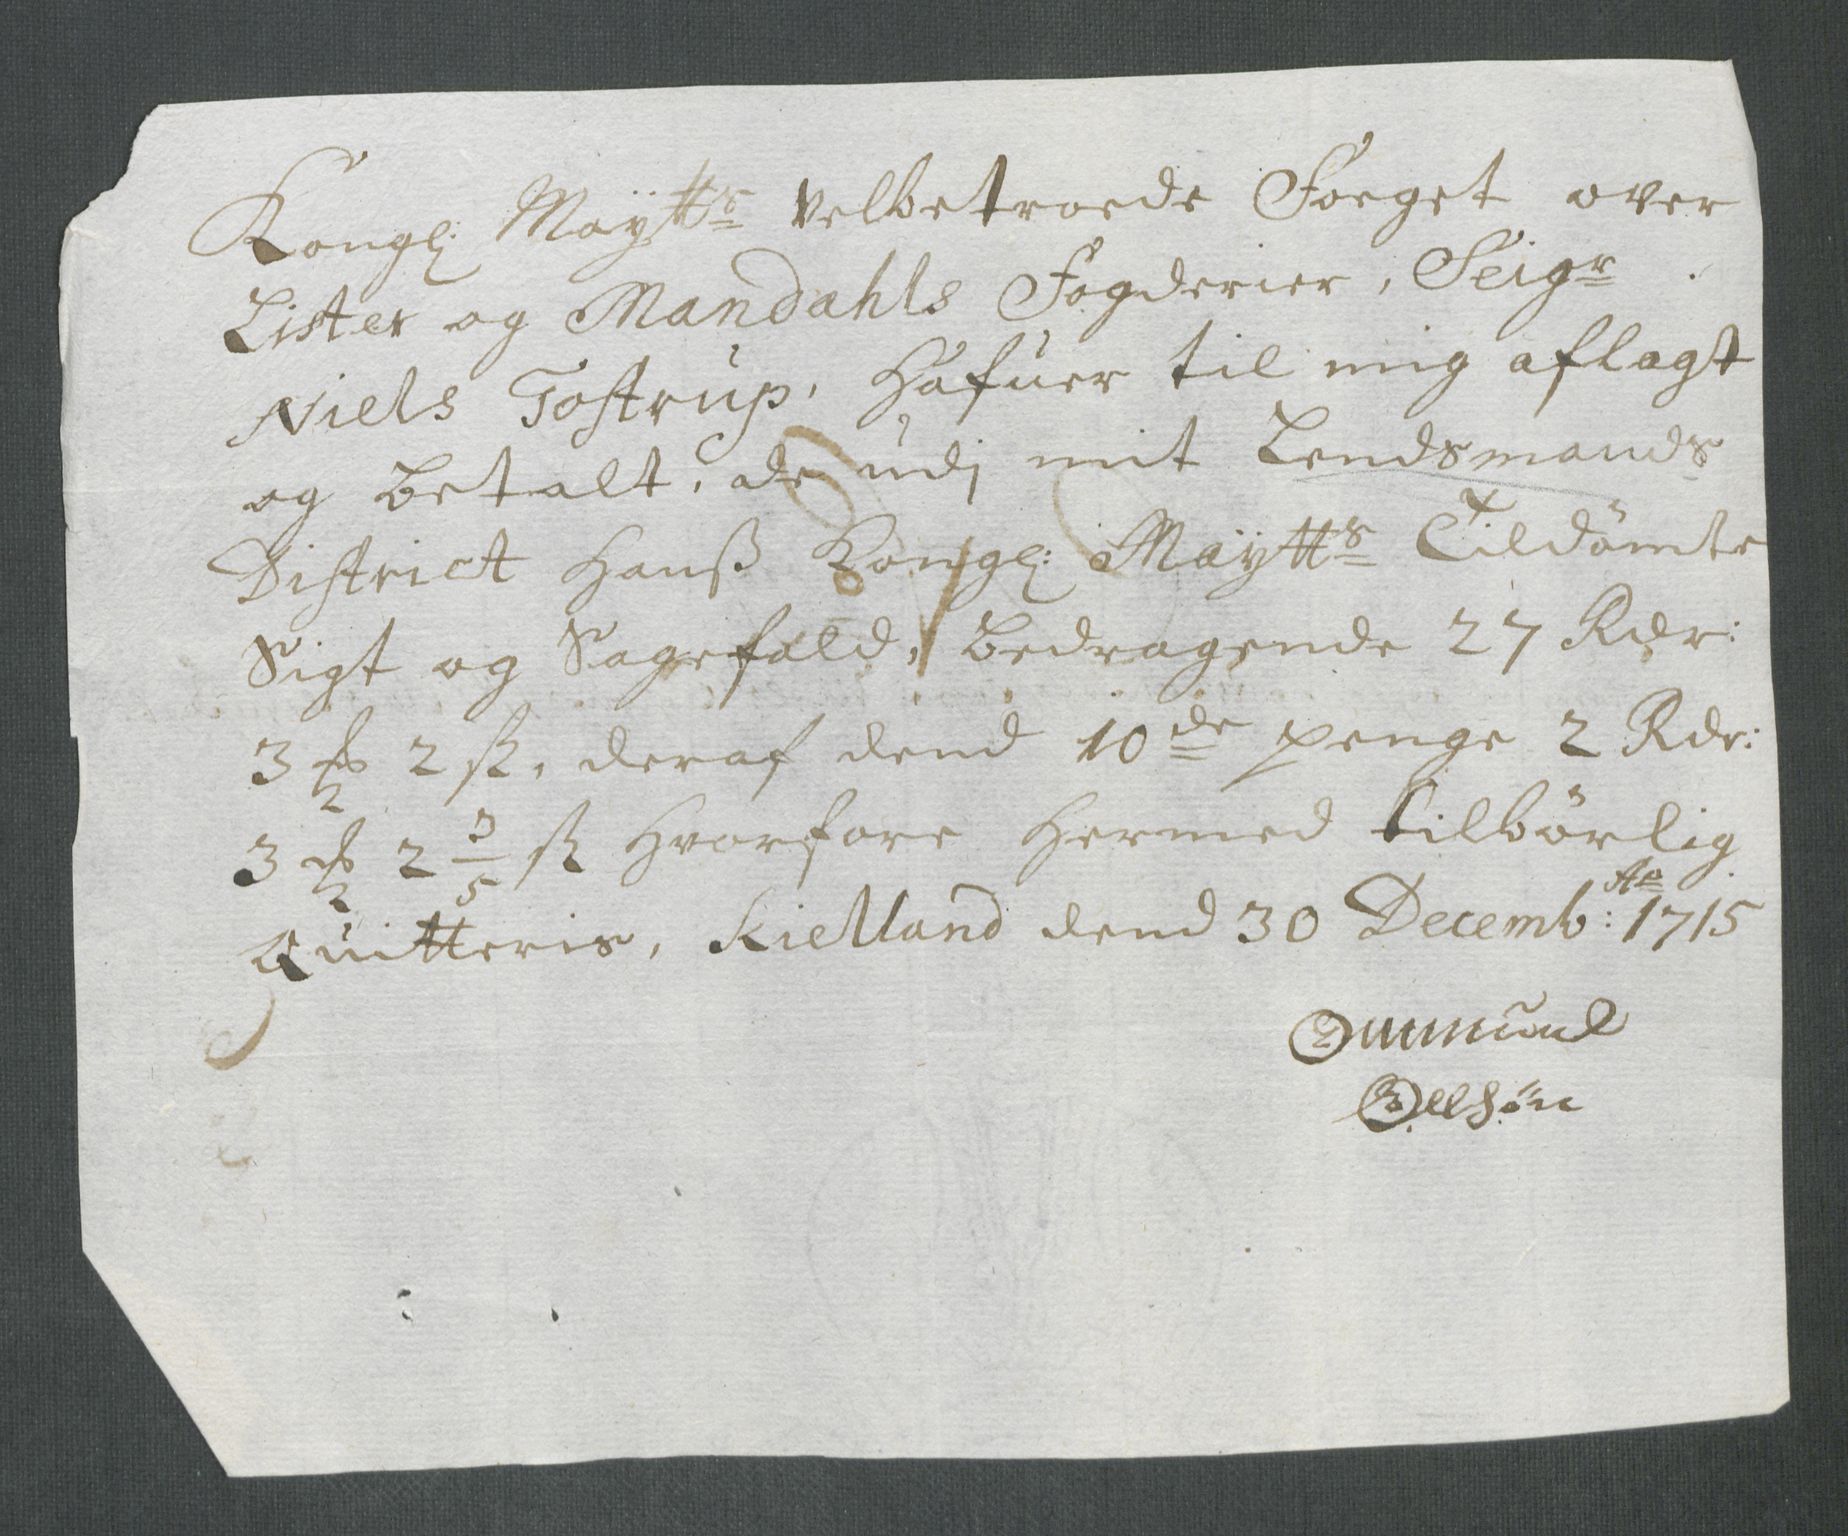 Kongl: Maÿtts velbetroede Foeget over
Lister og Mandahls Fogderier, Seigr
Niels Tostrup, Hafuer til mig aflagt
og betalt, de udj mit Lendsmands
District Hanß Kongl: Maÿtts Tildömte
Sigt og Sagefald, bedragende 27 Rdr:
3 2 ß, deraf dend 10de penge 2 Rdr:
3 2 3/5 ß Hvorfore Hermed tilbörlig
Quitteris, Kielland dend 30 Decemb: Ao 1715
Ommund
Ollsön